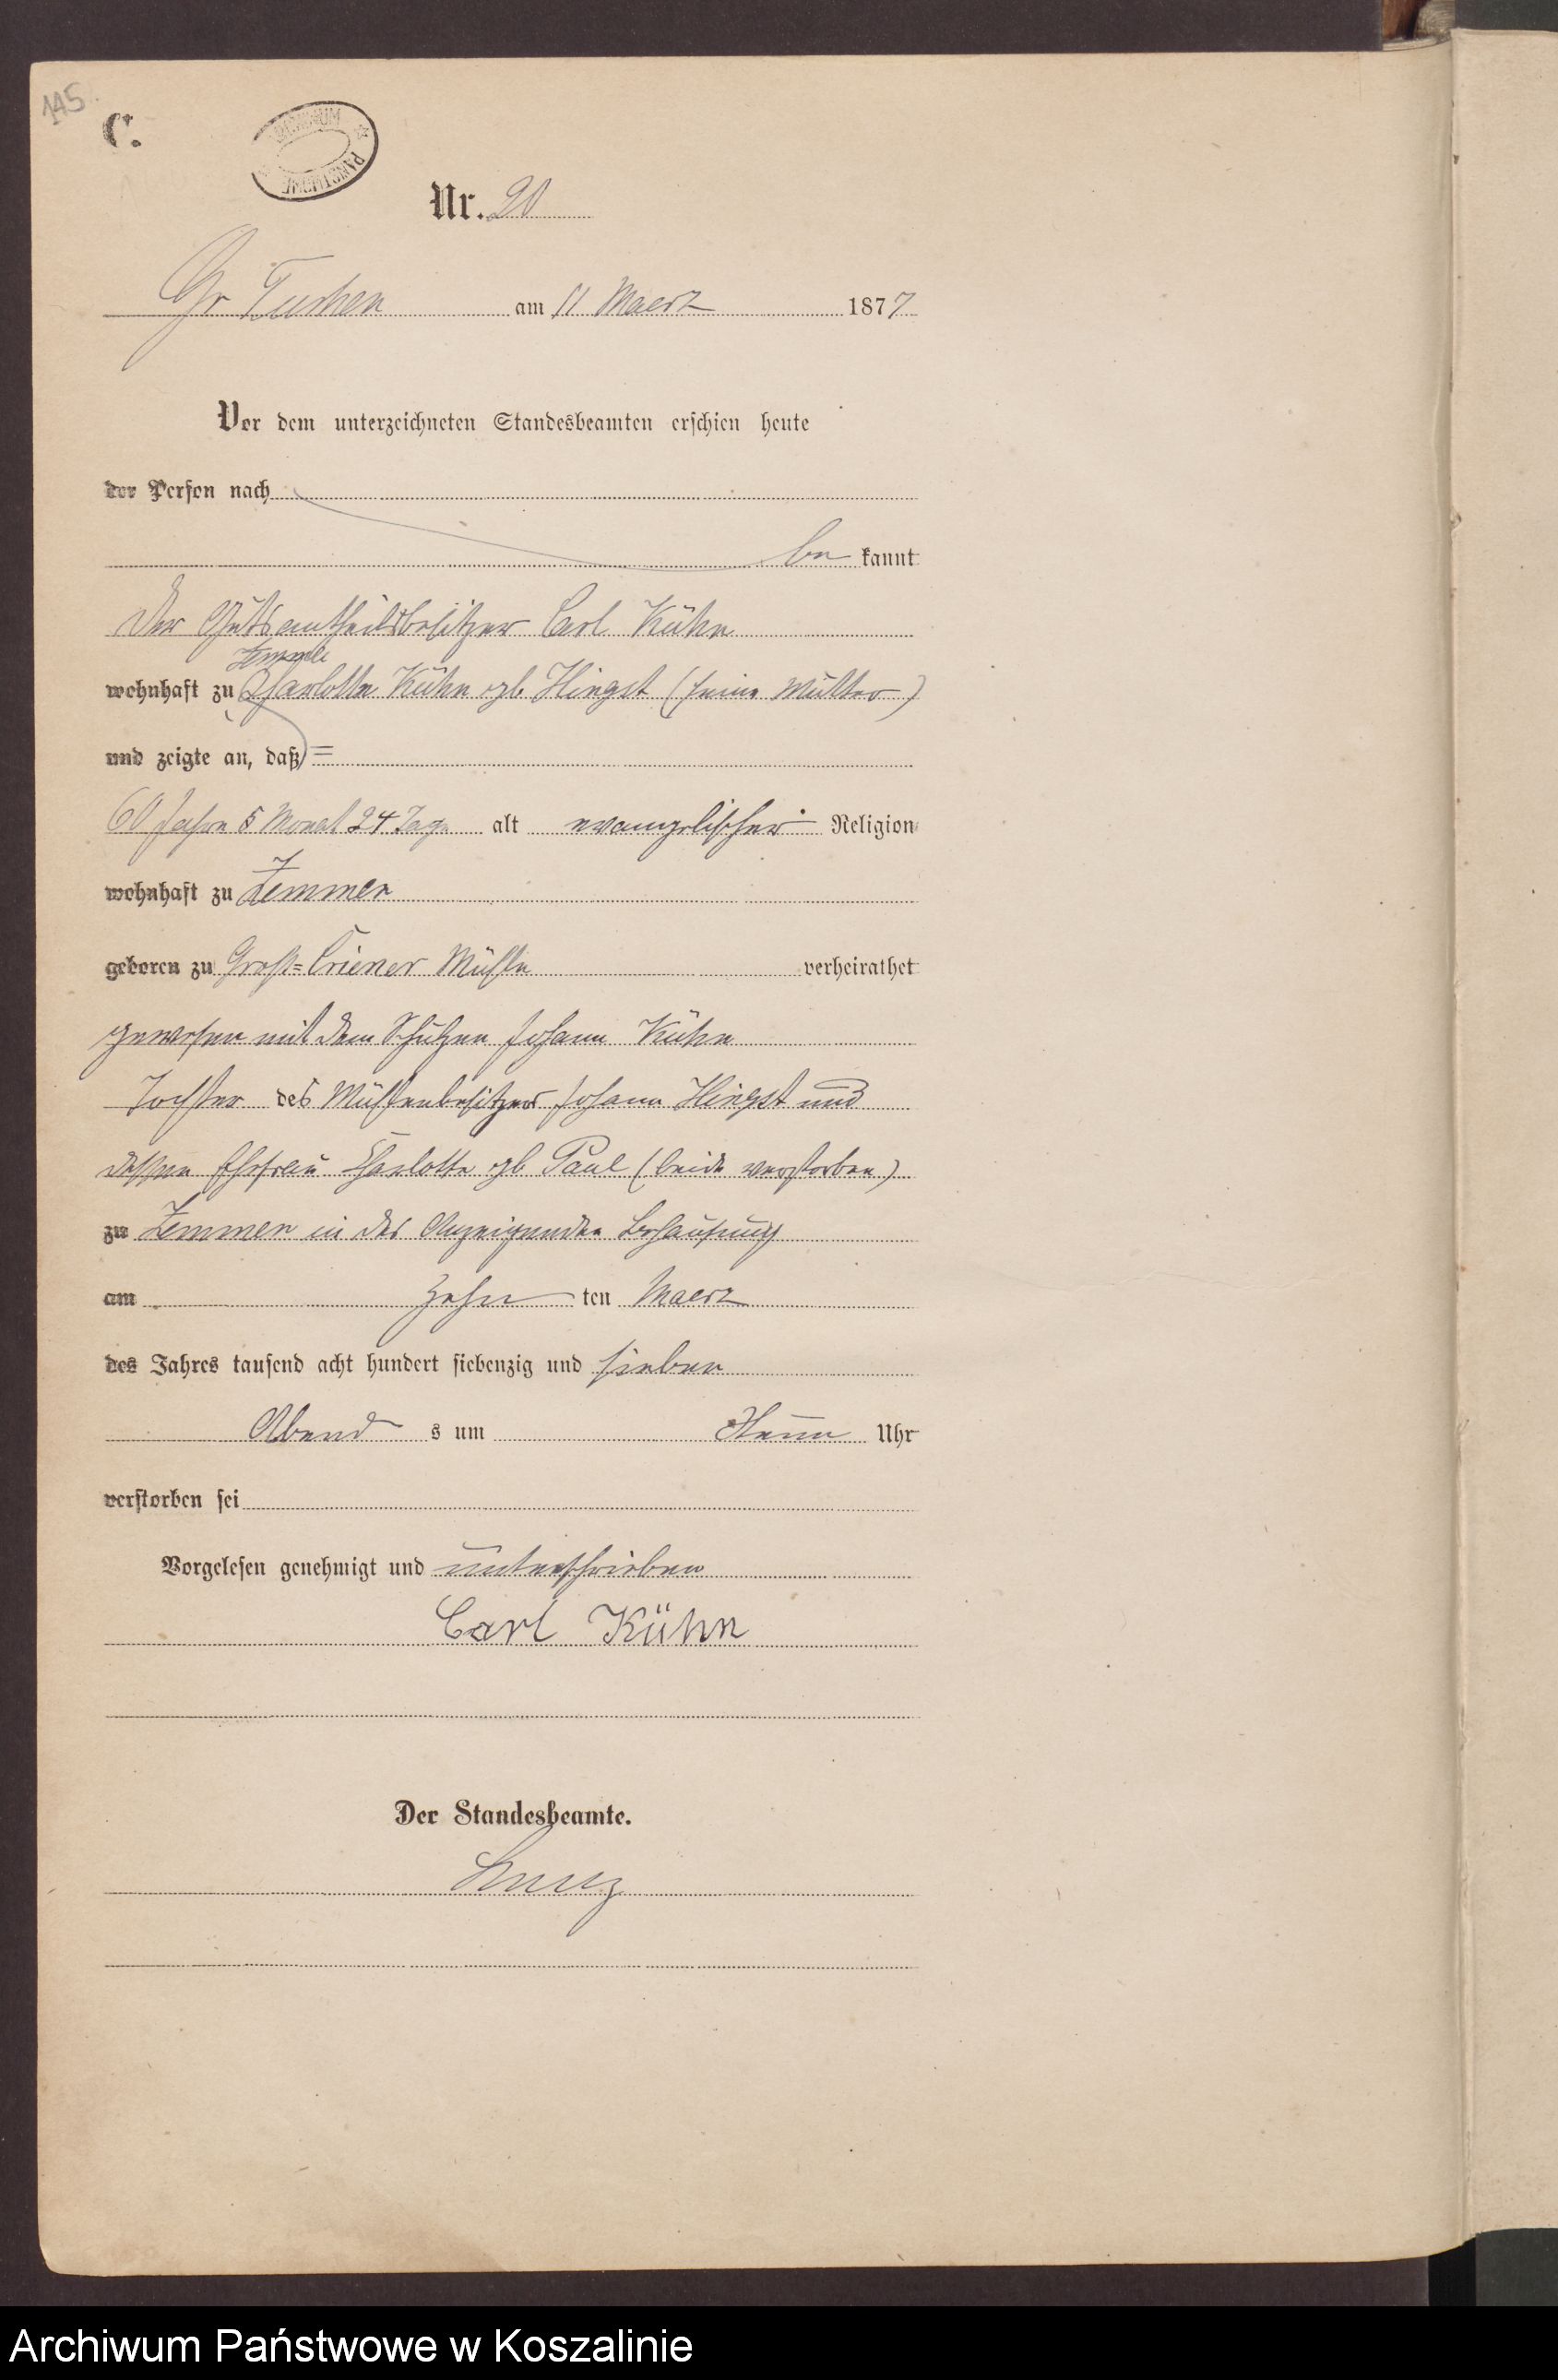 145
C.
ARCHIWUM PAŃSTWOWE
Nr. 20
Gr Tuchen am 11 Maerz 1877
Vor dem unterzeichneten Standesbeamten erschien heute
der Person nach
be kannt
der Gutsantheilsbesitzer Carl Kühn
Zemmen
wohnhaft zu Charlotte Kühn gb. Hingst (seine Mutter)
und zeigte an, daß =
60 Jahre 5 Monat 24 Tage alt evangelischer Religion
wohnhaft zu Zemmen
geboren zu Groß=Criener Mühle verheirathet
gewesen mit dem Schulzen Johann Kühn
Tochter des Mühlenbesitzers Johann Hingst und
dessen Ehefrau Charlotte gb Paul (beide verstorben)
zu Zemmen in des Anzeigenden Behausung
am zehn ten Maerz
des Jahres tausend acht hundert siebenzig und sieben
Abend s um Neun Uhr
verstorben sei
Vorgelesen genehmigt und unterschrieben
Carl Kühn
Der Standesbeamte.
Archiwum Państwowe w Koszalinie